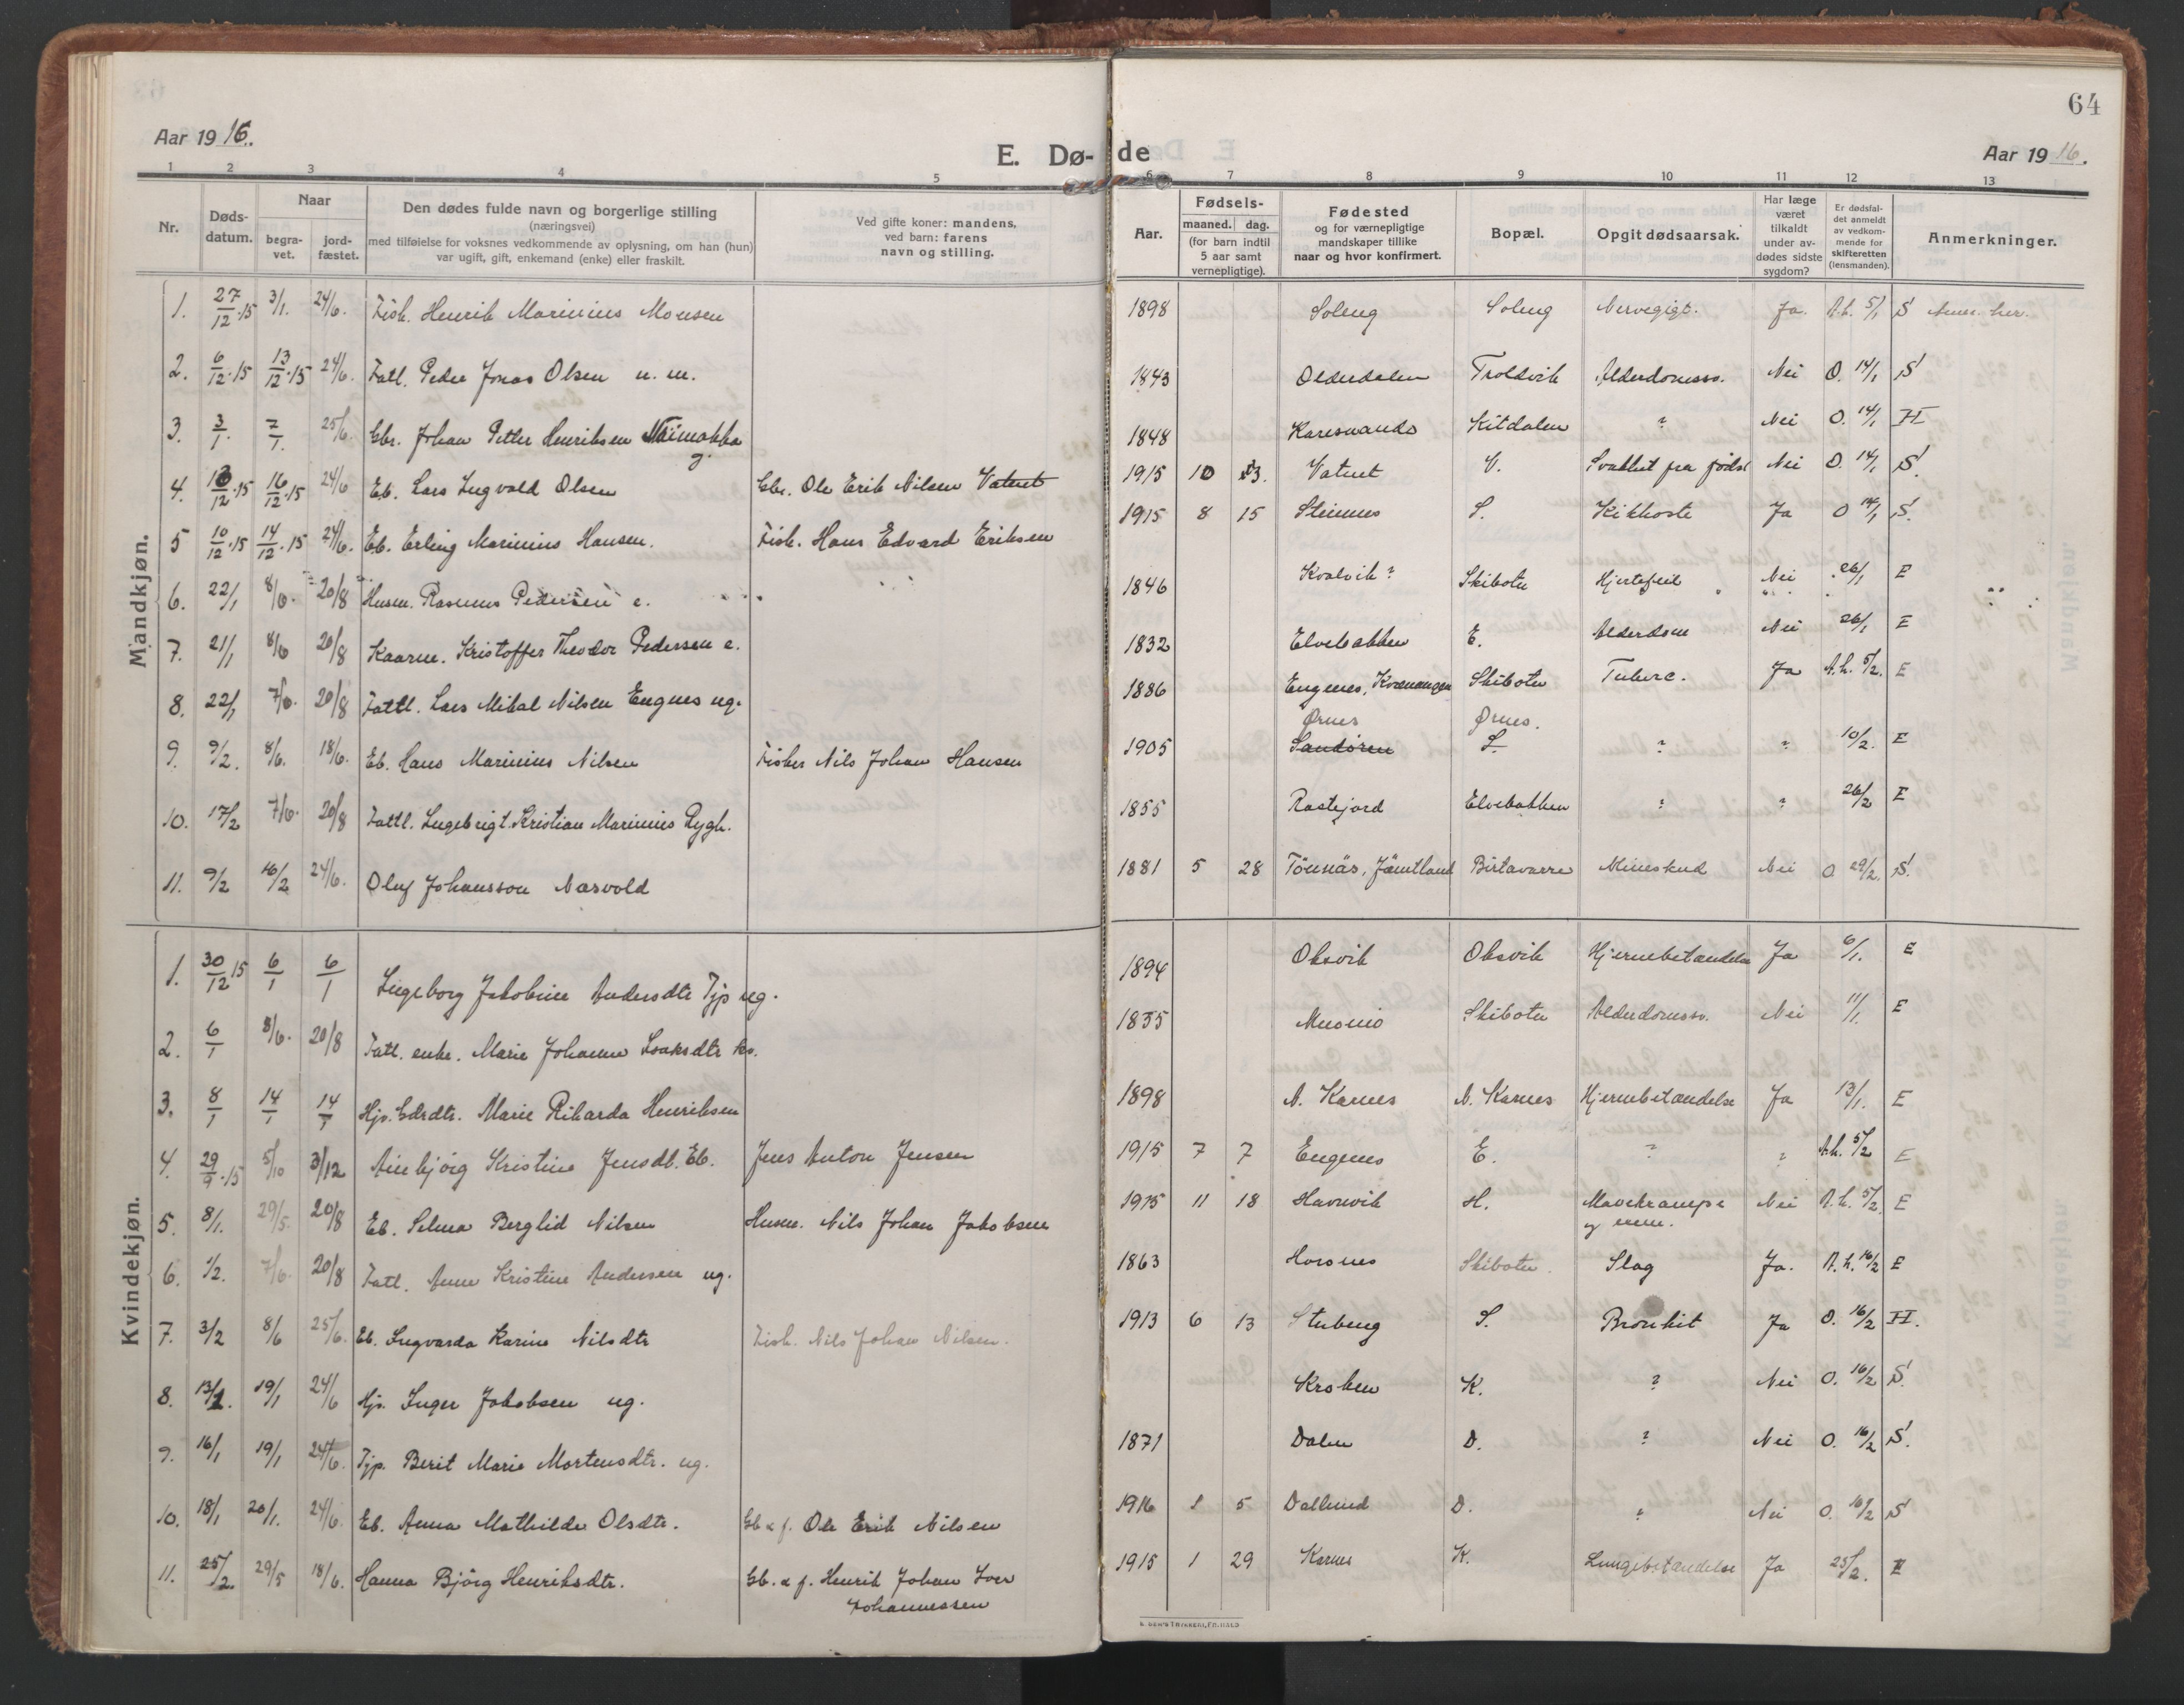 64
Aar 1916.
E. Dø-de
Aar 1916.
1 2 3 4 5 6 7 8 9 10 11 12 13
Nr.
Døds-datum.
Naar
begra-vet.
jord-fæstet.
Den dødes fulde navn og borgerlige stilling
(næringsvei)
med tilføielse for voksnes vedkommende av oplysning, om han (hun)
var ugift, gift, enkemand (enke) eller fraskilt.
Ved gifte koner: mandens,
ved barn: farens
navn og stilling.
Aar.
Fødsels-
maaned. dag.
(for barn indtil
5 aar samt
vernepligtige).
Fødested
og for værnepligtige
mandskaper tillike
naar og hvor konfirmert.
Bopæl.
Opgit dødsaarsak.
Har læge
været
tilkaldt
under av-
dødes sidste
sygdom?
Er dødsfal-
det anmeldt
av vedkom-
mende for
skifteretten
(lensmanden).
Anmerkninger.
Mandkjøn.
1. 27/12.15 3/1. 24/6. Fisk. Henrik Marinius Monsen 1898 Soleng Soleng Nervegigt. Ja. A.h. 5/1 S Anm. her.
2. 6/12.15 13/12.15 24/6. Fatl. Peder Jonas Olsen u. m. 1843 Olderdalen Troldvik Alderdomssv. Nei O. 14/1 S
3. 3/1. 7/1. 25/6. Gbr. Johan Petter Henriksen Naimakka g. 1848 Karesuando Kitdalen " Nei O. 14/1 II
4. 13/12.15 16/12.15 24/6 Eb. Lars Ingvald Olsen Gbr. Ole Erik Nilsen Vatnet 1915 10 23. Vatnet V. Svakhet fra fødsl Nei O. 14/1 S.
5 10/12.15 14/12.15 24/6. Eb. Erling Marinius Hansen. Fisk. Hans Edvard Eriksen 1915 8 15 Steinnes S. Kikhoste Ja O 14/1 S.
6. 22/1 8/6. 20/8 Husm. Rasmus Pedersen e. 1846 Kvalvik? Skibotn Hjertefeil Nei 26/1 E
7. 21/1 8/6 20/8 Kaarm. Kristoffer Theodor Pedersen e. 1832 Elvebakken E. Alderdom Nei 26/1 E
8. 22/1 7/6. 20/8 Fattl. Lars Mikal Nilsen Engnes ug. 1886 Engenes, Kvænangen Skibotn Tuberc. Ja A.h. 5/2. E
9. 9/2. 8/6. 18/6. Eb. Hans Marinius Nilsen Fisker Nils Johan Hansen 1905 Ørnes Sandøren Ørnes. S. ? " 10/2. E
10. 17/2 7/6. 20/8 Fattl. Ingebrigt Kristian Marinius Rygh. 1855 Rastefjord Elvebakken ? " 26/2 E
11. 9/2 16/2 24/6. Oluf Johansson Næsvold 1881 5 28 Tönnäs, Jämtland Birtavarre Mineskud Nei O 29/2. S.
Kvindekjøn.
1. 30/12 15 6/1 6/1 Ingeborg Jakobine Andersdtr Tjp ug. 1894 Oksvik Oksvik Hjernebetændelse Ja 6/1. E
2. 6/1 8/6. 20/8 Fatl. enke. Marie Johanne Isaksdtr kv. 1835 Muonio Skibotn Alderdomssv. Nei 11/1. E
3. 8/1 14/1 14/1 Hjp. Gdrdtr. Marie Rikarda Henriksen 1898 N. Karnes N. Karnes Hjernebetændelse Ja 13/1. E
4. 29/9.15 5/10 3/12 Ainbjörg Kristine Jensdt. Eb. Jens Anton Jensen 1915 7 7 Engenes E. ? " A.h. 5/2 E
5. 8/1. 29/5. 20/8 Eb. Selma Berglid Nilsen Husm. Nils Johan Jakobsen 1915 11 18 Havnvik H. Mavekrampe Nei A.h. 5/2. E
6. 1/2. 7/6. 20/8 Fatl. Anne Kristine Andersen ug. 1863 Horsnes Skibotn. Slag Ja. A.h. 16/2 E
7. 3/2 8/6 25/6. Eb. Ingvarda Karine Nilsdtr Fisk. Nils Johan Nilsen. 1913 6 13 Stubeng S. Bronkit Ja O. 16/2 II.
8. 13/1. 19/1 24/6 Hj. Inger Jakobsen ug. Kroken K. ? Nei O. 16/2 S.
9. 16/1 19/1 24/6. Tjp. Berit Marie Mortensdtr. ug. 1871 Dalen D. ? Nei O. 16/2 S.
10. 18/1 20/1. 24/6 Eb. Anna Mathilde Olsdtr. Gb & f. Ole Erik Nilsen 1916 1 5 Dallund D. " Nei O. 16/2 S
11. 25/2. 29/5 18/6. Hanna Björg Henriksdtr. Gb. & f. Henrik Johan Iver Johannessen 1915 1 29 Karnes K. Lungebetændelse Ja 25/2. E